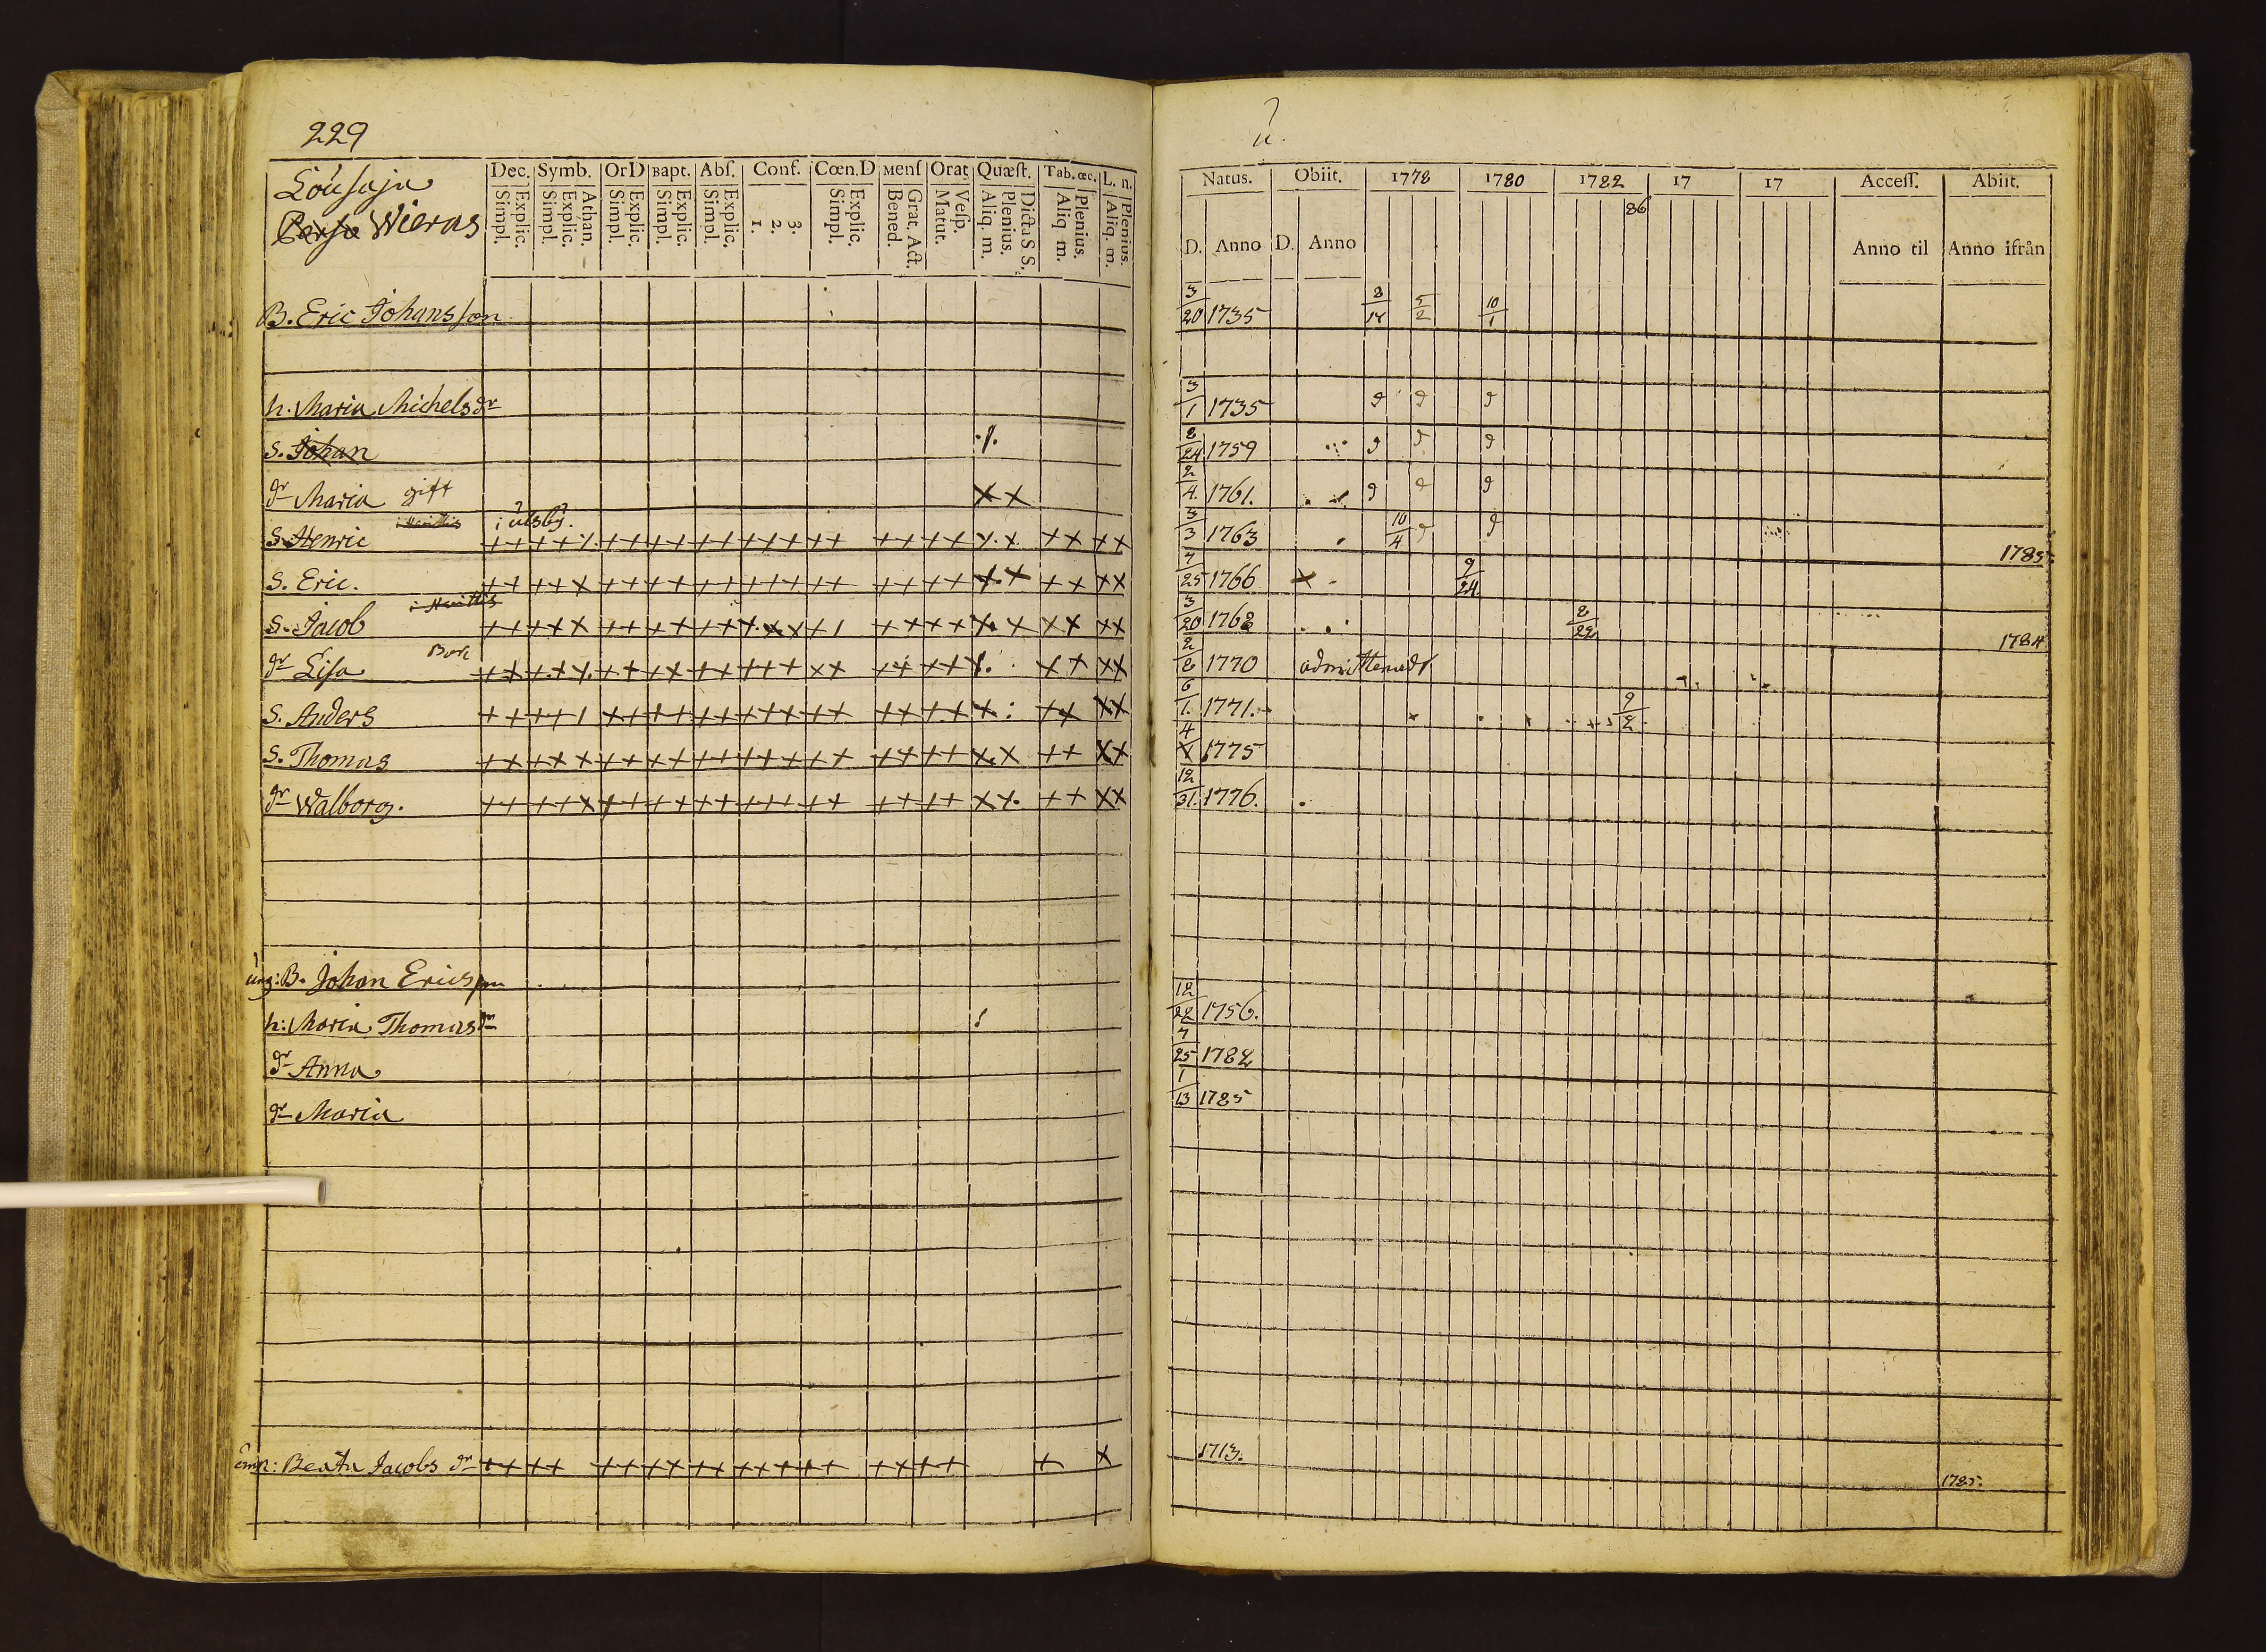 229
Lousaja
Wieras
Dec. Symb. OrD Bapt. Abſ. Conf. Cœn.D Menſ Orat Quæſt. Tab.œc. L. n.
Explic. Simpl. Athan. Explic. Simpl. Explic. Simpl. Explic. Simpl. Explic. Simpl. 3. 2. 1. Explic. Simpl. Grat. Act. Bened. Veſp. Matut. Dicta S S. Plenius. Aliq. m. Plenius. Aliq m. Plenius. Aliq. m.
B. Eric Johansson
h. Maria Michels dr
S. Johan
dr Maria gift
i Ulsby.
S. Henric
S. Eric.
S. Jacob
dr Lisa
S. Anders
S. Thomas
dr Walborg.
ung: B. Johan Ericsson
h: Maria Thomas dr
dr Anna
dr Maria
Beata Jacobs dr
Natus. Obiit. 1778 1780 1782 17 17 Acceſſ. Abiit.
86
D. Anno D. Anno Anno til Anno ifrån
3/20 1735 8/14 5/2 10/1
3/1 1735
8/24 1759
2/4 1761.
3/3 1763 10/4 1785.
7/25 1766 9/24
3/20 1768 8/22 1784
2/8 1770 admitteradt
6/1 1771. 9/2
4/1 1775
12/31 1776.
12/22 1756.
7/25 1782
1/13 1785
1713.
1785.